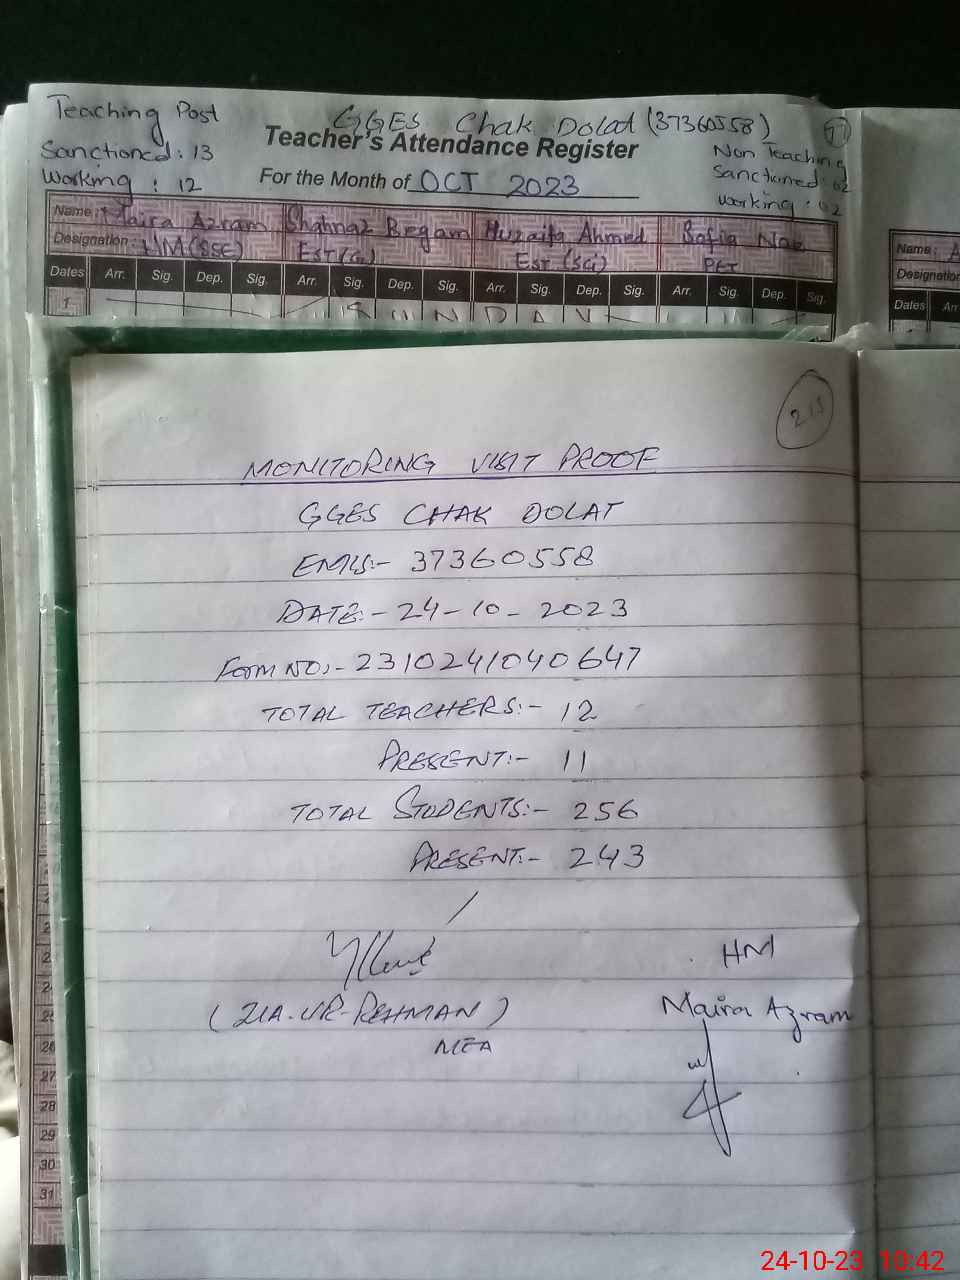 Teaching Post
Sanctioned: 13
Working : 12
GGES Chak Dolat (37360558)
77
Teacher's Attendance Register
For the Month of OCT 2023
Non Teaching
Sanctioned: 02
working : 02
Name: Maira Azram Shahnaz Begam Huzaifa Ahmed Safia Naz
Designation: HM(SSE) EST(G) EST (Sci) PET
Dates Arr. Sig. Dep. Sig. Arr. Sig. Dep. Sig. Arr. Sig. Dep. Sig. Arr. Sig. Dep. Sig.
1 SUNDAY
Name: A
Designation
Dates Arr
MONITORING VISIT PROOF
GGES CHAK DOLAT
EMIS:- 37360558
DATE:- 24-10-2023
Form NO:- 2310241040647
TOTAL TEACHERS:- 12
PRESENT:- 11
TOTAL STUDENTS:- 256
PRESENT:- 243
(ZIA-UR-REHMAN)
MEA
HM
Maira Azram
26
27
28
29
30
31
24-10-23 10:42